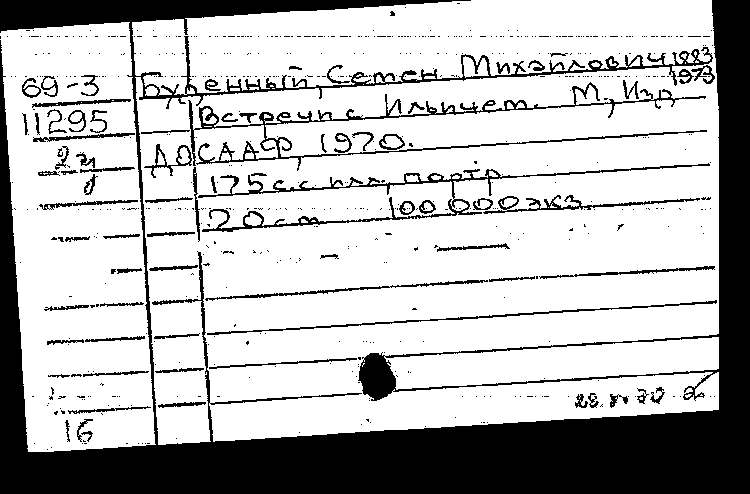 69-3 Буденный, Семен Михайлович 1883
1973
11295 Встречи с Ильичем. М., Изд.
2 э ДОСААФ, 1970.
175 с. с илл., портр.
20 см 100 000 экз.
16